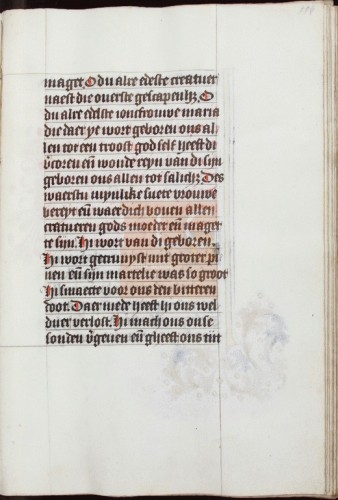 184
maget. O du alre edelste creatuer
naest die overste gescapenhz. O
du alre edelste ioncfrouwe maria
die daer ye wort geboren ons al
len tot een troost god self heeft di
vercoren en̄ woude reyn van di sijn
geboren ons allen tot salich. Des
waerstu mynlike suete vrouwe
bereyt en̄ waerdich boven allen
creatueren gods moeder en̄ maget
te sijn. Hi wort van di geboren.
Hi wort gecruyst mit groter pi
nen en̄ sijn martelie was so groot
Hi smaecte voor ons den bitteren
doot. Daer mede heeft hi ons wel
duer verlost. Hi mach ons onse
sonden vergeven en̄ gheeft ons tijt